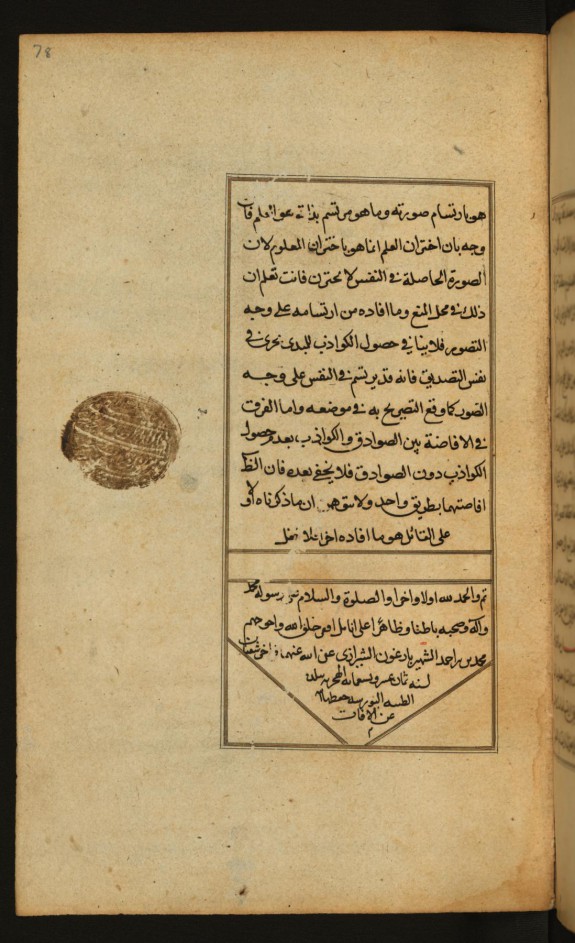 78
هو بارتسام صورته وما هو مرتسم بذاته
وجه بان اختزان العلم انما هو باختزان المعلوم لان
الصورة الحاصلة في النفس لا تختزن فانت تعلم ان
ذلك في محل المنع وما افاده من ارتسامه على وجه
التصور فلا ينافي حصول الكواذب للمبدى
نفس التصديق فانه قد يرتسم في النفس على وجه
التصور كما وقع التصريح به في موضعه واما الفرق
في الافاضة بين الصوادق والكواذب بعدم حصول
الكواذب دون الصوادق فلا يخفى بعده فان الظ
افاضتهما بطريق واحد ولا يتوهم ان ما ذكرناه
على القائل هو ما افاده اخرا فلا تغفل
تم والحمد لله اولا واخرا والصلوة والسلام على رسوله محمد
واله وصحبه باطنا وظاهرا على انامل افقر خلق الله واحوجهم
محمد بن احمد الشهير الشيرازي عفى الله عنهما في اخر شعبان
لسنة ثمان
عن الافات
م